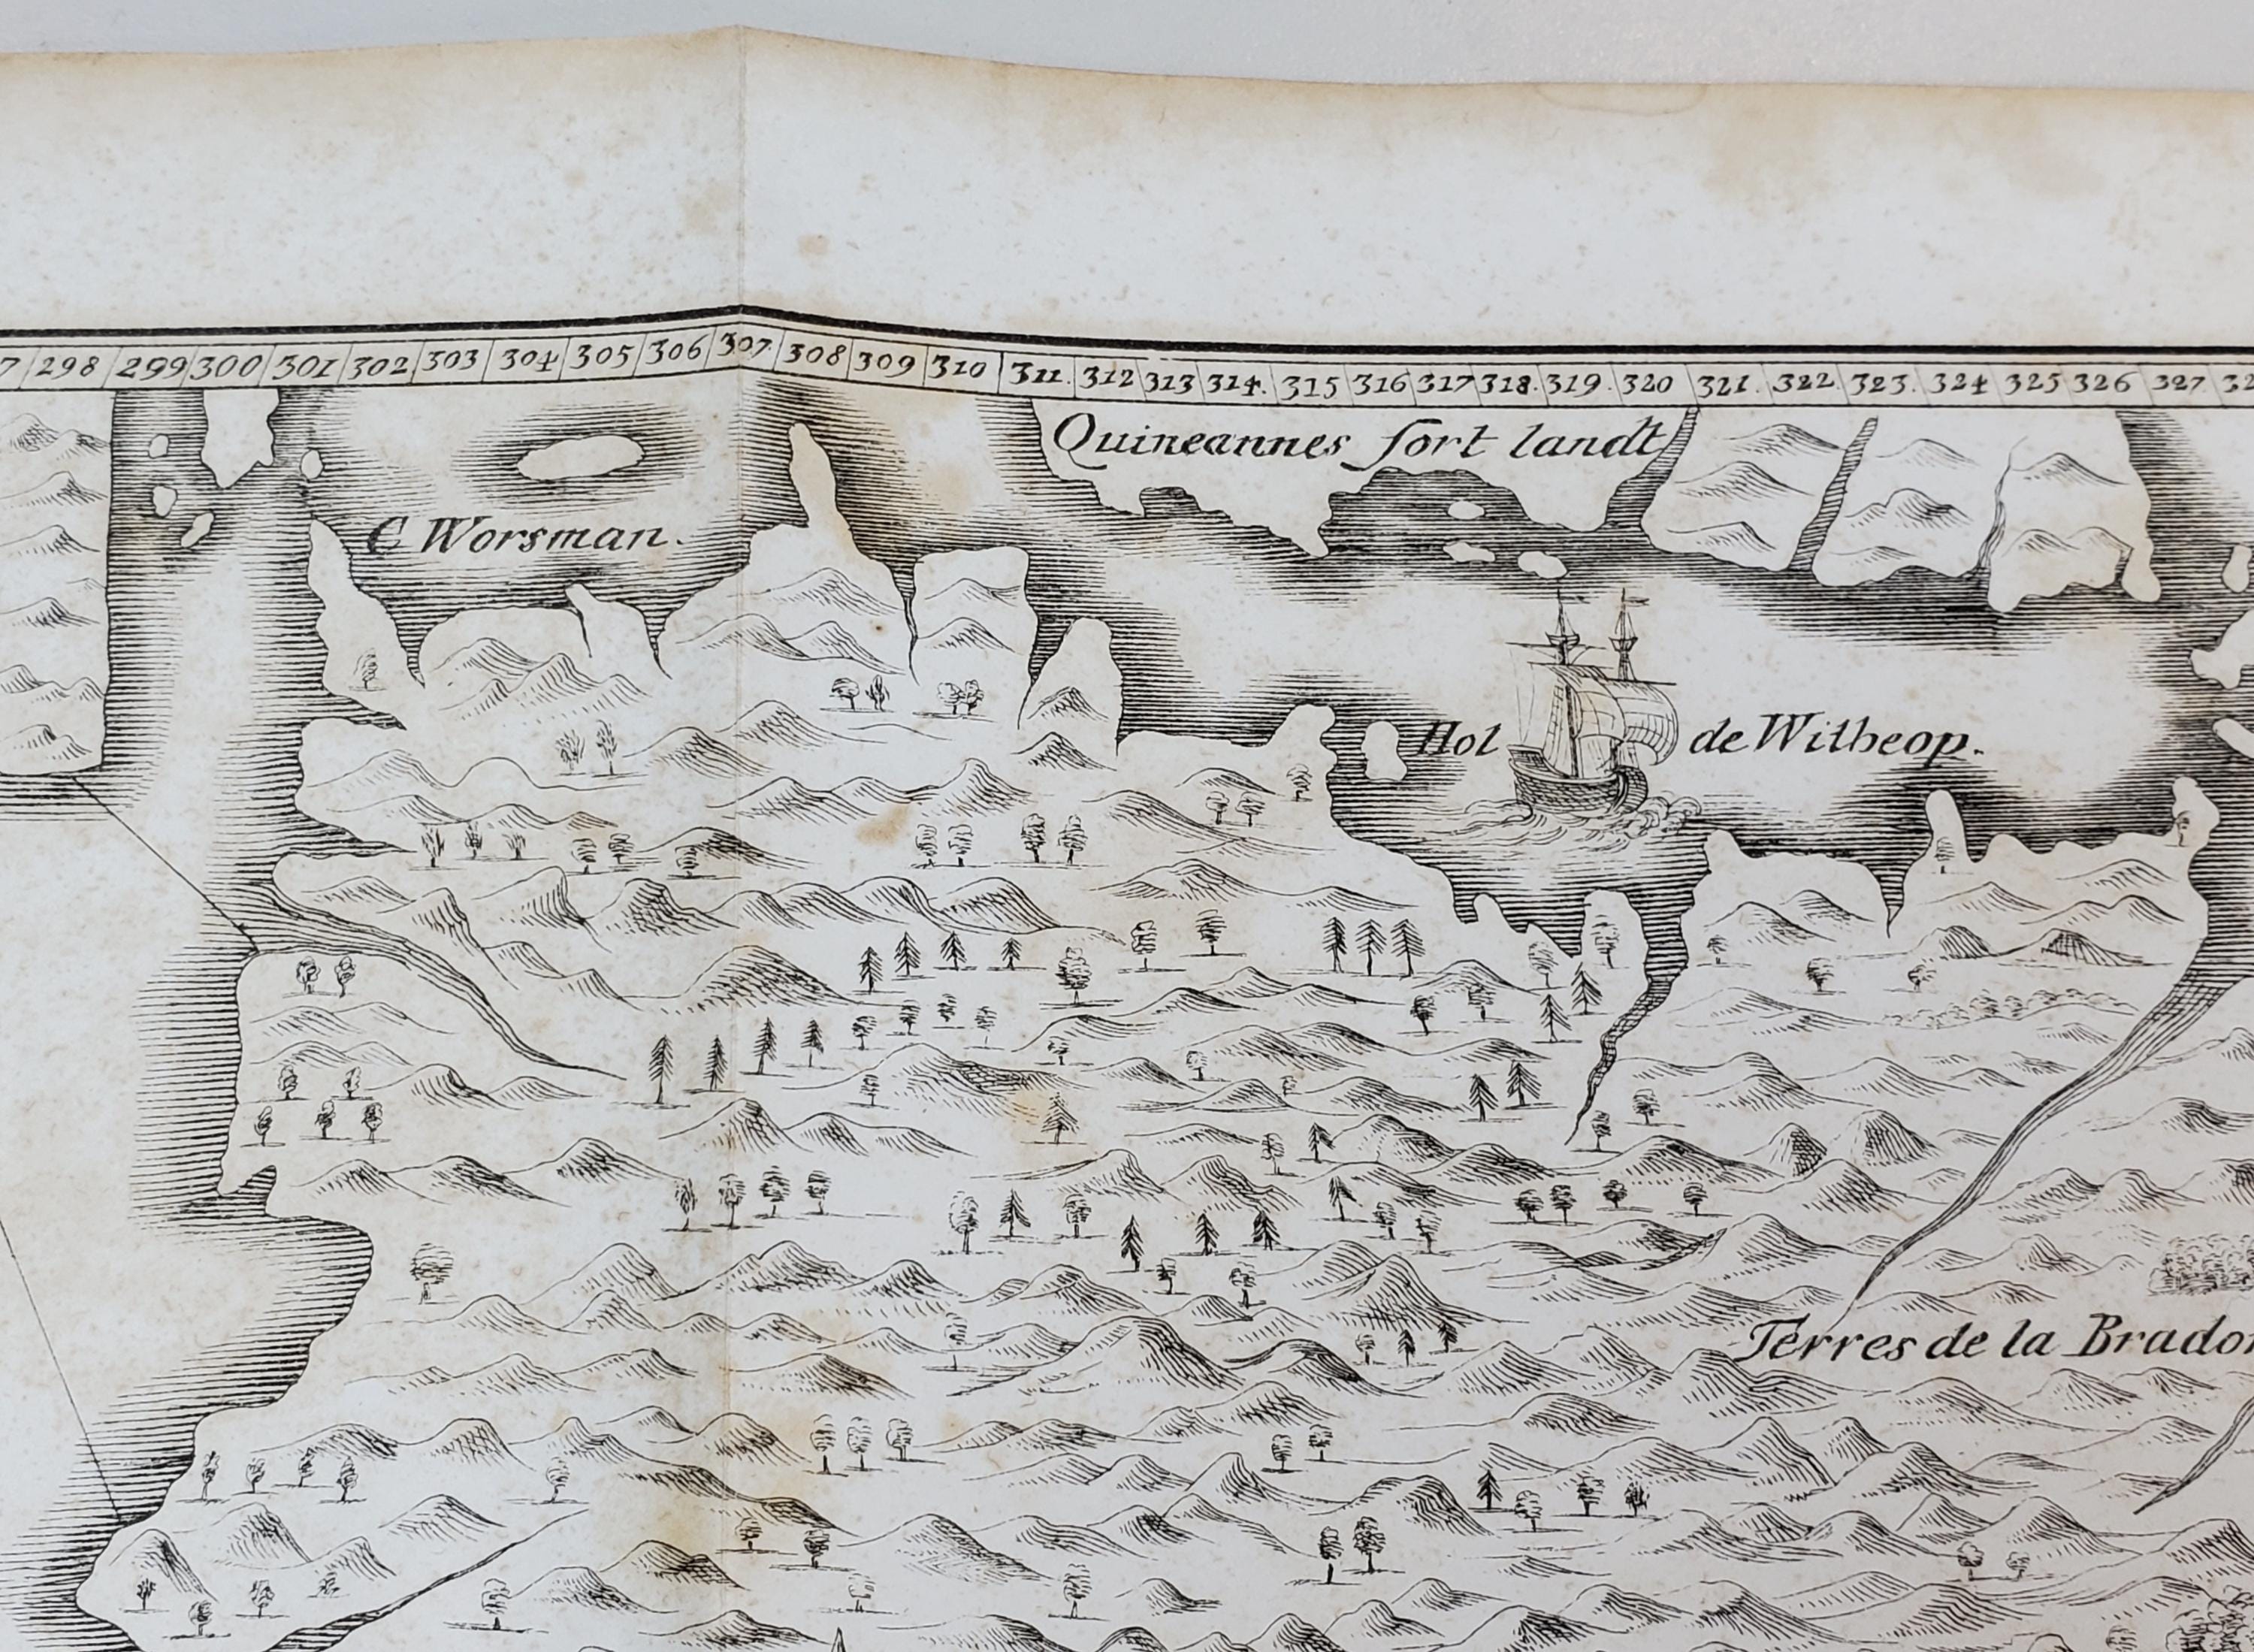 7 298 299 300 301 302 303 304 305 306 307 308 309 310 311. 312 313 314. 315 316 317 318. 319. 320 321. 322. 323. 324 325 326 327 32
Quineannes fort landt
C Worsman.
Hol de Witheop.
Terres de la Brador